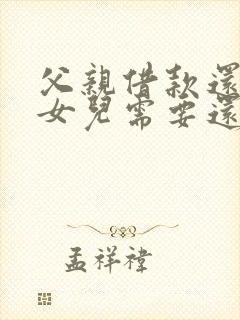 父親借款還
女兒需要還
孟祥禕